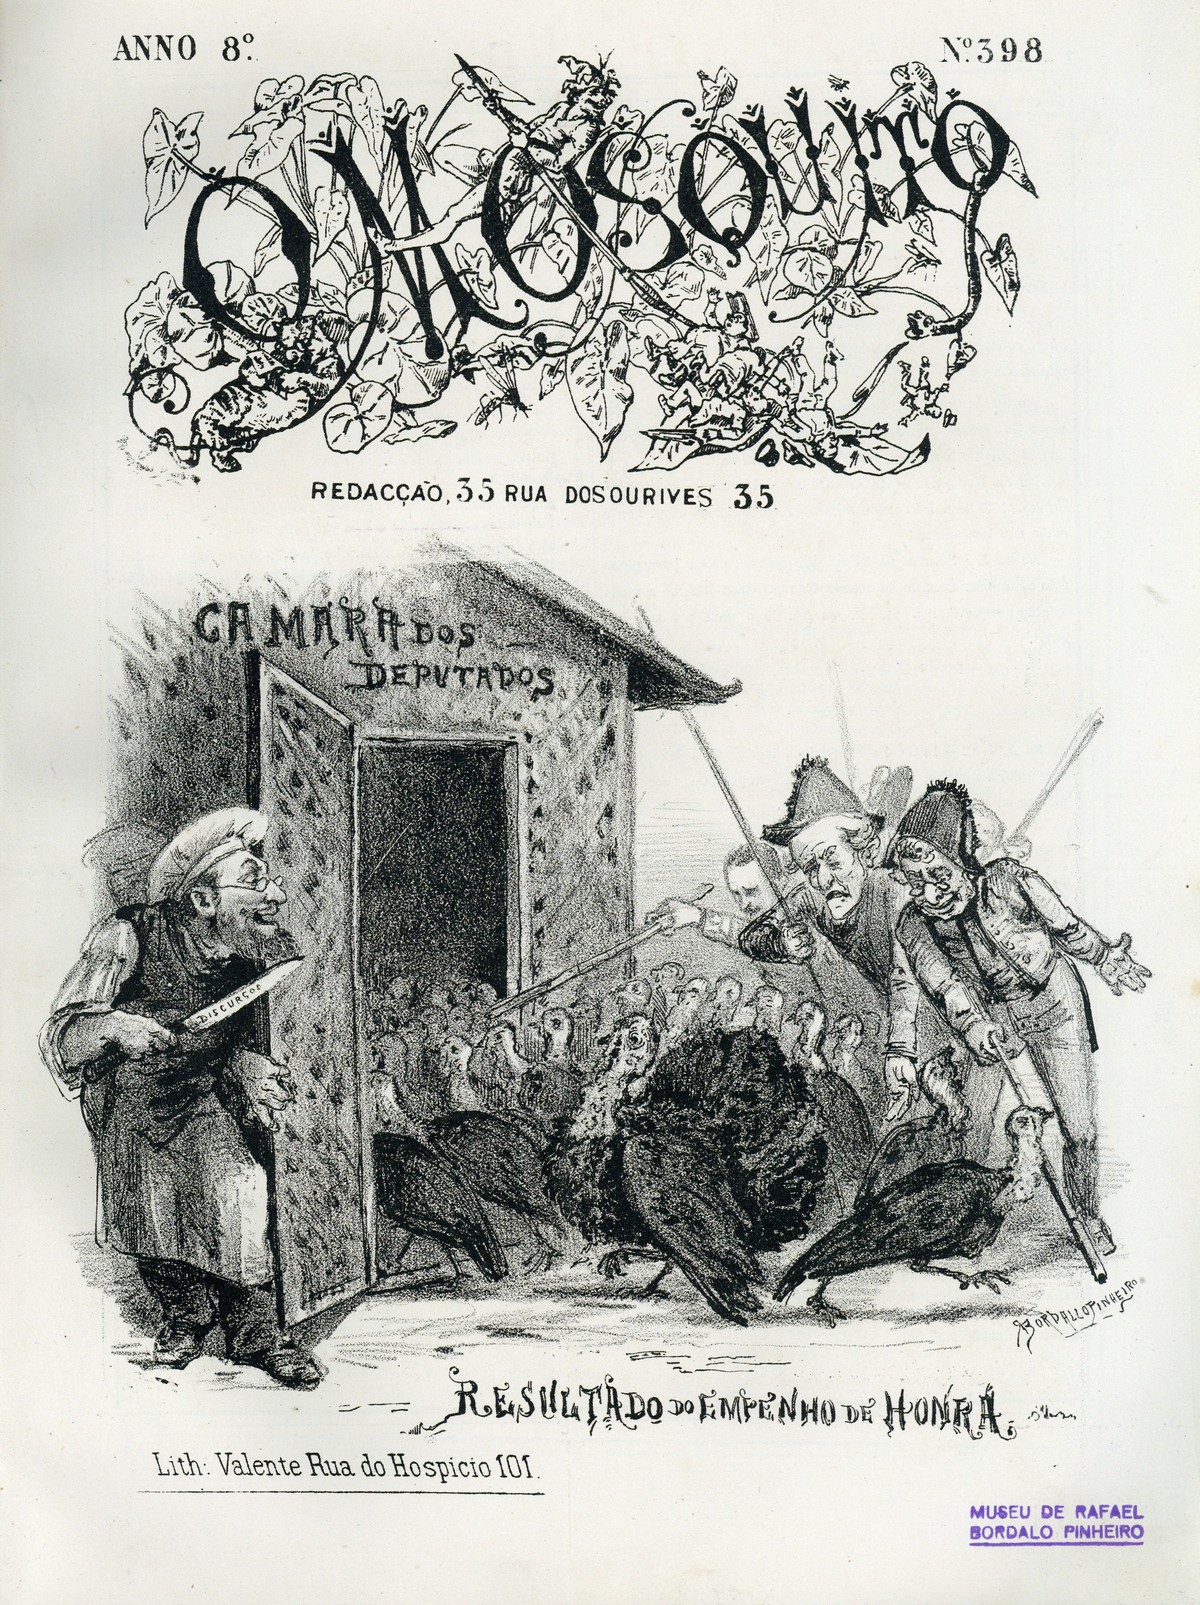 ANNO 8º.
Nº 398
O MOSQUITO
REDACÇÃO, 35 RUA DOS OURIVES 35
CAMARA DOS
DEPUTADOS
DISCURSOS
BORDALLO PINHEIRO
RESULTADO DO EMPENHO DE HONRA.
Lith: Valente Rua do Hospicio 101.
MUSEU DE RAFAEL
BORDALO PINHEIRO